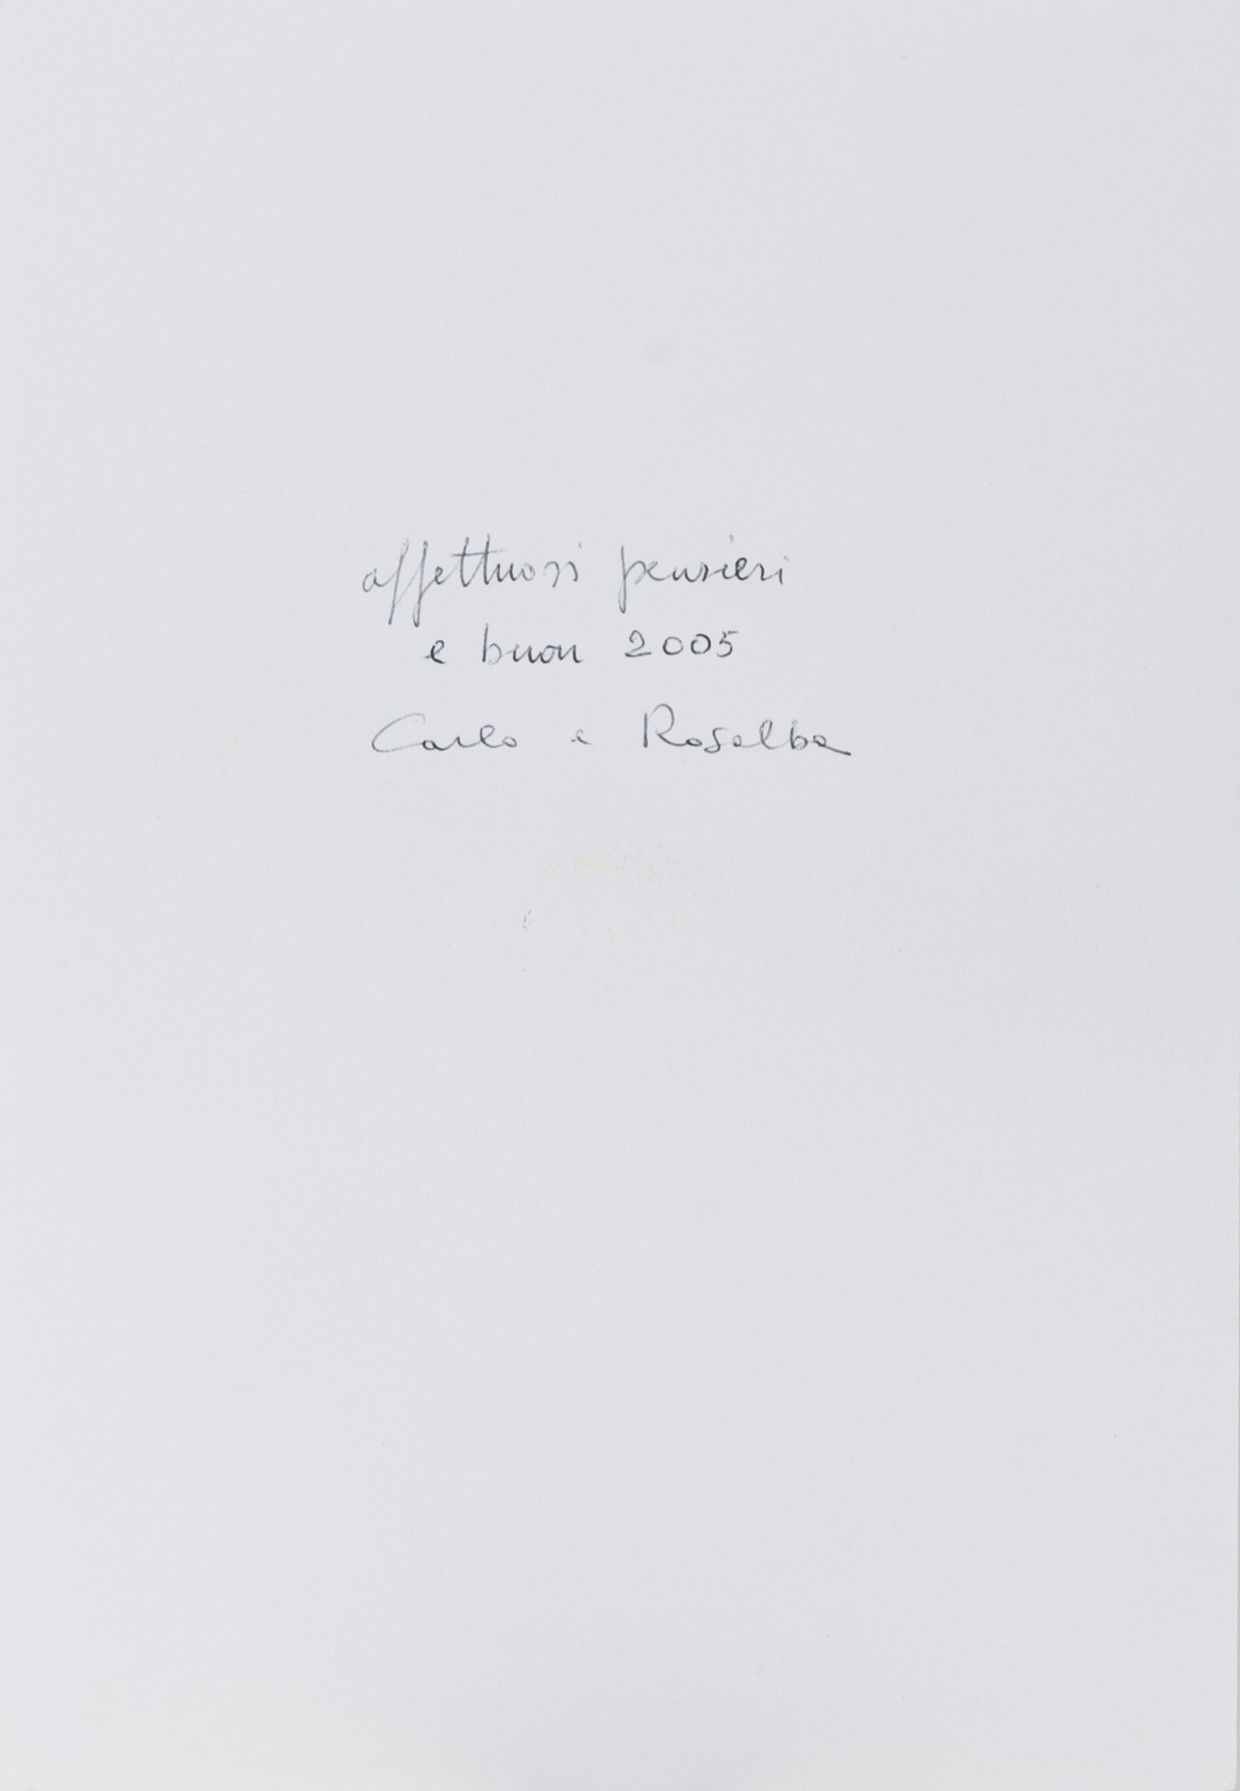 affettuosi pensieri
e buon 2005
Carlo e Rosalba